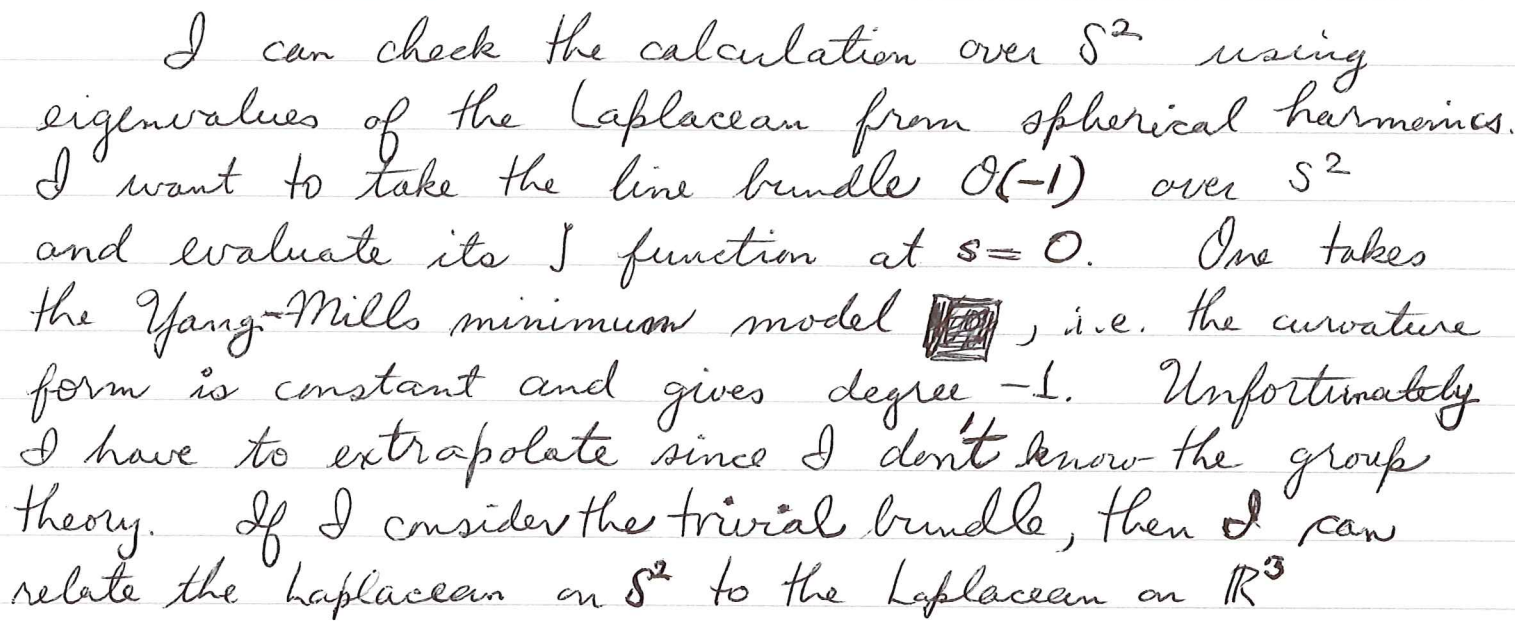 I can check the calculation over S² using
eigenvalues of the Laplacean from spherical harmonics.
I want to take the line bundle O(-1) over S²
and evaluate its ζ function at s=0. One takes
the Yang-Mills minimum model , i.e. the curvature
form is constant and gives degree -1. Unfortunately
I have to extrapolate since I don't know the group
theory. If I consider the trivial bundle, then I can
relate the Laplacean on S² to the Laplacean on ℝ³